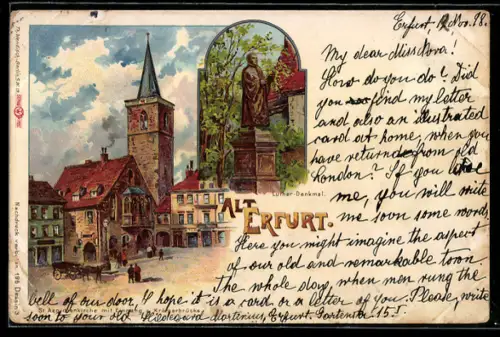 Erfurt, Nov. 98.
My dear Miss Nova!
How do you do? Did
you find my letter
and also an illustrated
card at home, when you
have returned from old
London? If you
me, you will write
me soon some words.
Here you might imagine the aspect
of our old and remarkable town.
The whole day, when men rung the
bell of our door, I hope it is a card or a letter of you. Please, write
soon to your old Hildegard Martinius, Erfurt. Gartenstr. 15 I.
Luther-Denkmal.
ALT
ERFURT.
Nachdruck verboten. 196 Dess.